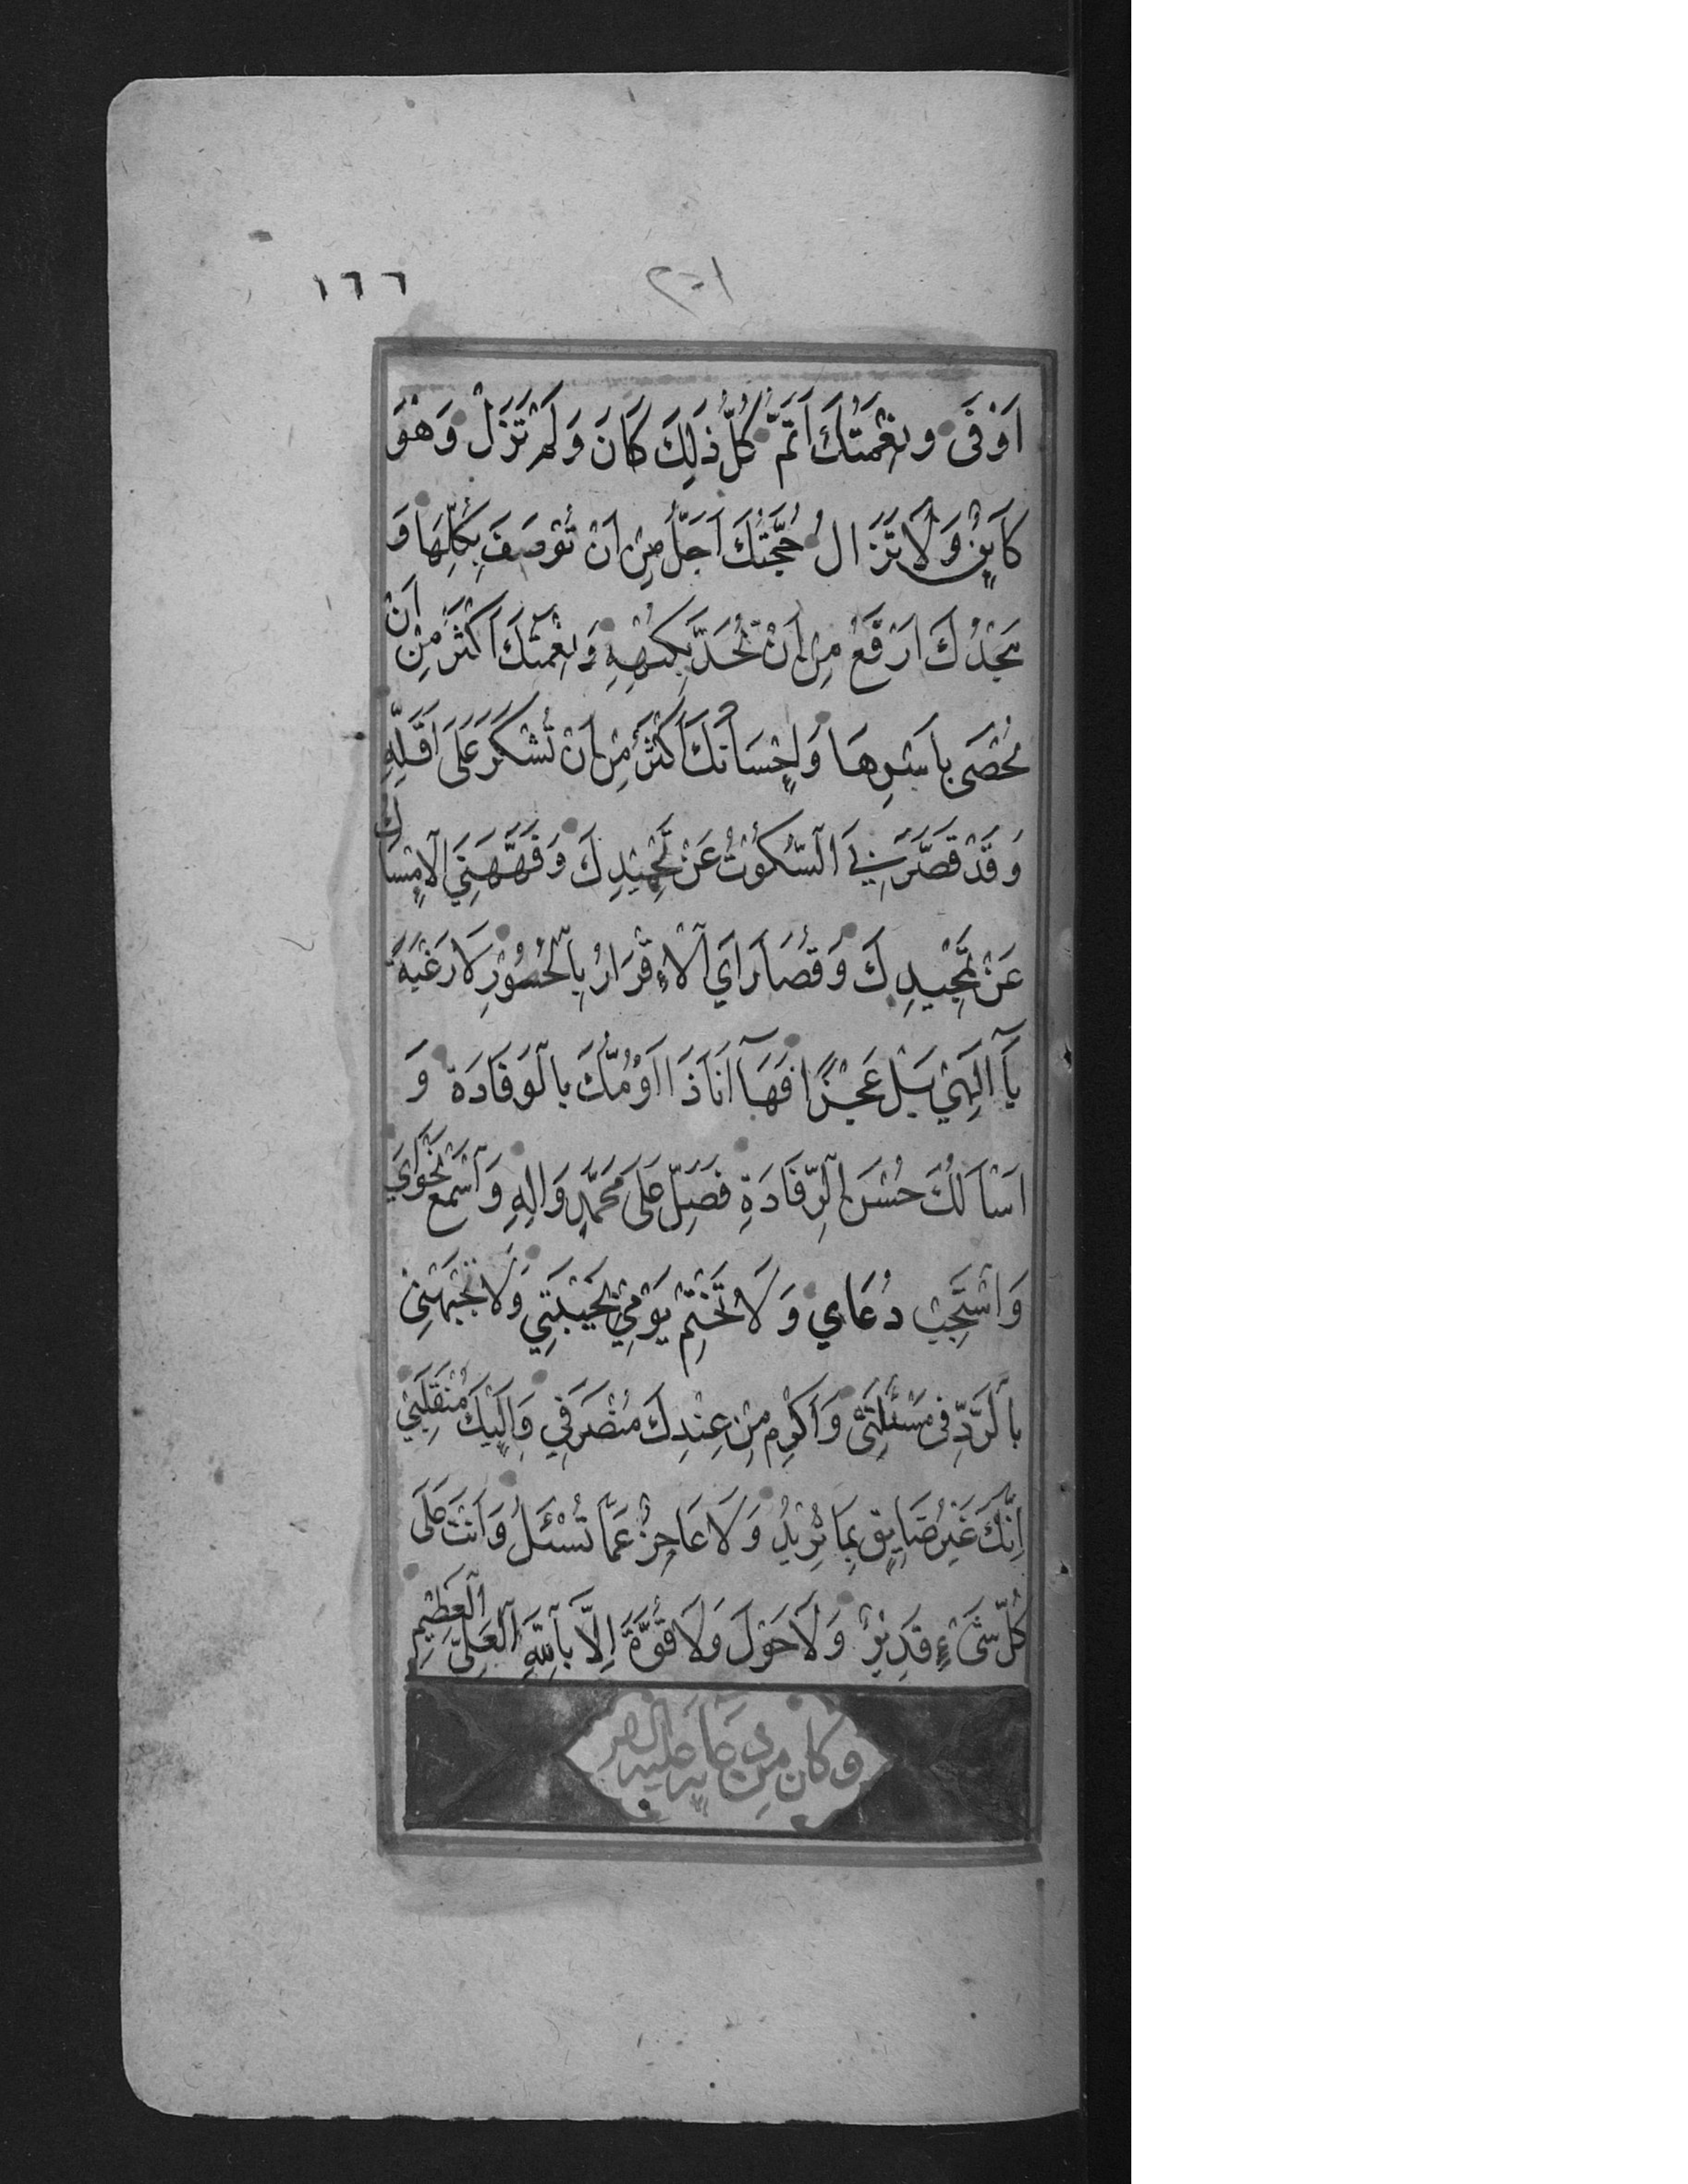 ١٦٦
اَوْفَى وَنِعْمَتُكَ اَتَمَّ كُلُّ ذٰلِكَ كَانَ وَلَمْ تَزَلْ وَهُوَ
كَايِنٌ وَلَا تَزَالُ حُجَّتُكَ اَجَلُّ مِنْ اَنْ تُوْصَفَ بِكُلِّهَا وَ
مَجْدُكَ اَرْفَعُ مِنْ اَنْ تُحَدَّ بِكُنْهِهِ وَنِعْمَتُكَ اَكْثَرُ مِنْ اَنْ
تُحْصَى بِاَسْرِهَا وَاِحْسَانُكَ اَكْثَرُ مِنْ اَنْ تُشْكَرَ عَلَى اَقَلِّهِ
وَقَدْ قَصَّرَنِيَ السُّكُوْتُ عَنْ تَحْمِيْدِكَ وَفَهَّهَنِيَ الْاِمْسَاكُ
عَنْ تَمْجِيْدِكَ وَقُصَارَايَ الْاِقْرَارُ بِالْحُسُوْرِ لَا رَغْبَةً
يَا اِلٰهِيْ بَلْ عَجْزًا فَهَا اَنَا ذَا اَؤُمُّكَ بِالْوَفَادَةِ وَ
اَسْاَلُكَ حُسْنَ الرِّفَادَةِ فَصَلِّ عَلَى مُحَمَّدٍ وَالِهِ وَاسْمَعْ نَجْوَايَ
وَاسْتَجِبْ دُعَايِ وَلَا تَخْتِمْ يَوْمِيْ بِخَيْبَتِيْ وَلَا تَجْبَهْنِيْ
بِالرَّدِّ فِى مَسْئَلَتِىْ وَاَكْرِمْ مِنْ عِنْدِكَ مُنْصَرَفِي وَاِلَيْكَ مُنْقَلَبِيْ
اِنَّكَ غَيْرُ ضَايِقٍ بِمَا تُرِيْدُ وَلَا عَاجِزٌ عَمَّا تُسْئَلُ وَاَنْتَ عَلَى
كُلِّ شَىْءٍ قَدِيْرٌ وَلَا حَوْلَ وَلَا قُوَّةَ اِلَّا بِاللهِ الْعَلِىِّ الْعَظِيْمِ
وكان من دعايه عليه السلام